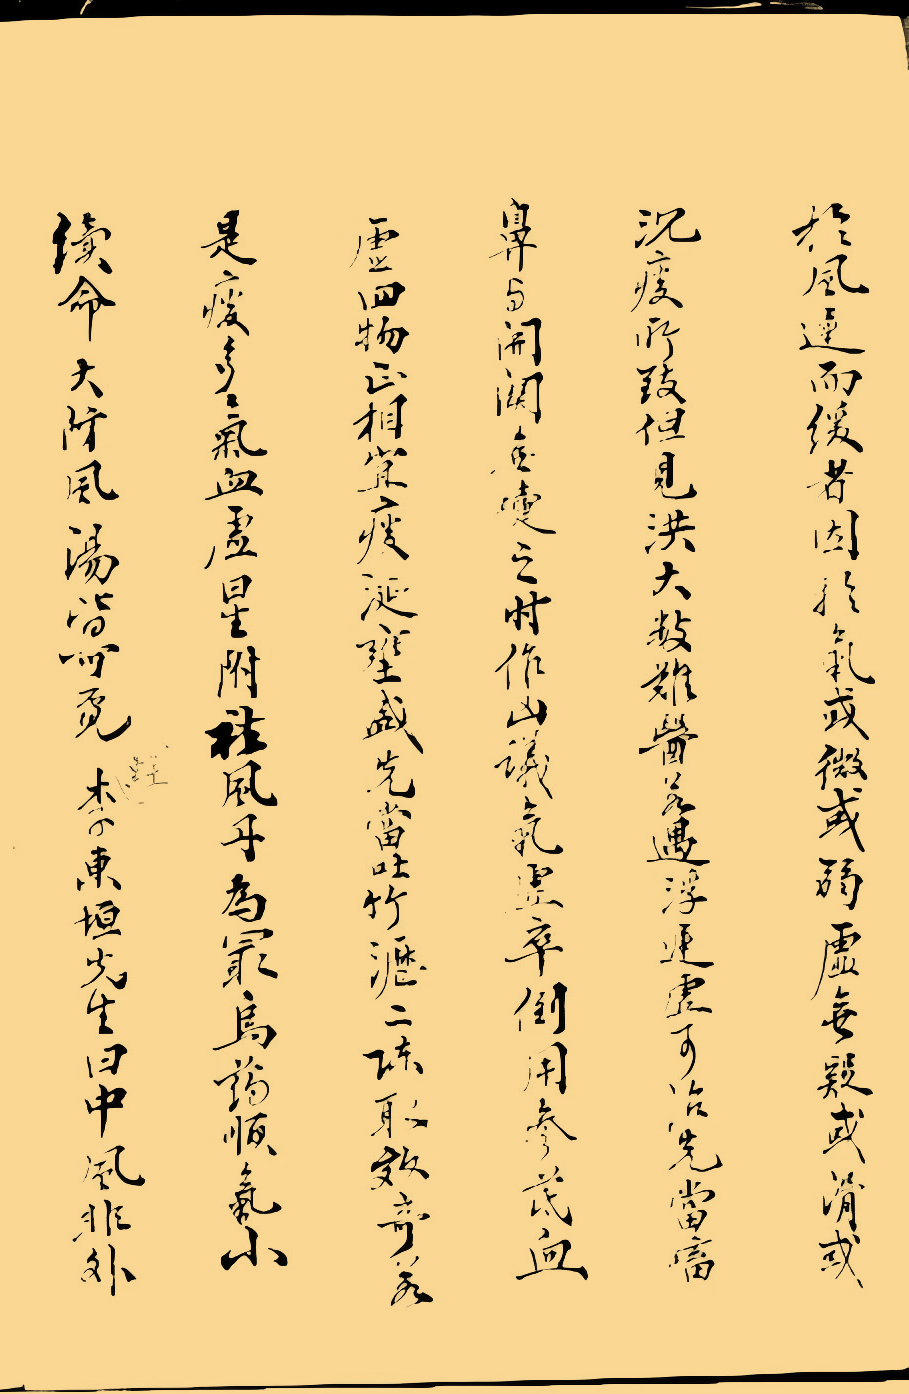 於風遲而緩者因於氣或微或弱虛無疑或滑或
沉痰所致但見洪大數難醫若遇浮遲虛可治先當嚏
鼻与開關金嚏之时作山議氣虛卒倒用參芪血
虛四物正相宜痰涎壅盛先當吐竹瀝二陳取效奇若
是痰多多氣血虛星附祛風丹為最烏药順氣小
續命大防風湯皆可覓 李東垣先生曰中風非外